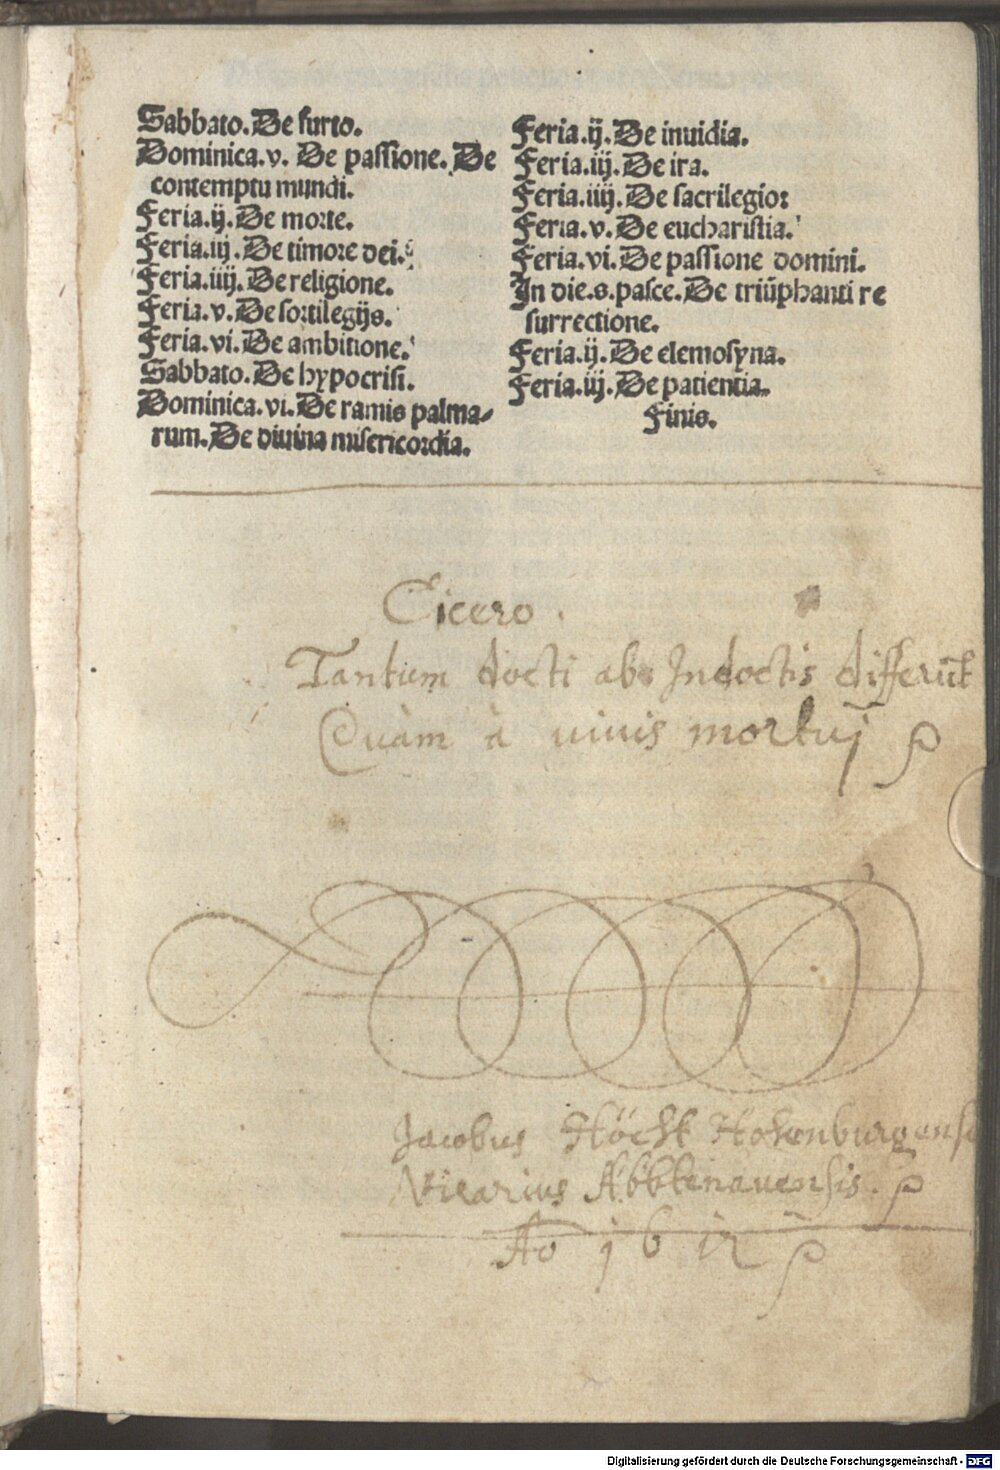 Sabbato. De furto.
Dominica. v. De passione. De
contemptu mundi.
Feria. ij. De morte.
Feria. iij. De timore dei.
Feria. iiij. De religione.
Feria. v. De sortilegijs.
Feria. vi. De ambitione.
Sabbato. De hypocrisi.
Dominica. vi. De ramis palma-
rum. De diuina misericordia.
Feria. ij. De inuidia.
Feria. iij. De ira.
Feria. iiij. De sacrilegio:
Feria. v. De eucharistia.
Feria. vi. De passione domini.
In die. s. pasce. De triūphanti re
surrectione.
Feria. ij. De elemosyna.
Feria. iij. De patientia.
Finis.
Cicero.
Tantum docti ab Indoctis differūt
Quàm à viuis mortuj
Jacobus Höcht Hohenburgens
Vicarius
Ao 1612
Digitalisierung gefördert durch die Deutsche Forschungsgemeinschaft - DFG